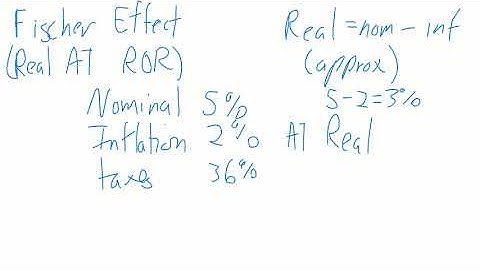 Fischer Effect
(Real AT ROR)
Nominal 5%
Inflation 2%
taxes 36%
Real = nom - inf
(approx)
5-2=3%
AT Real